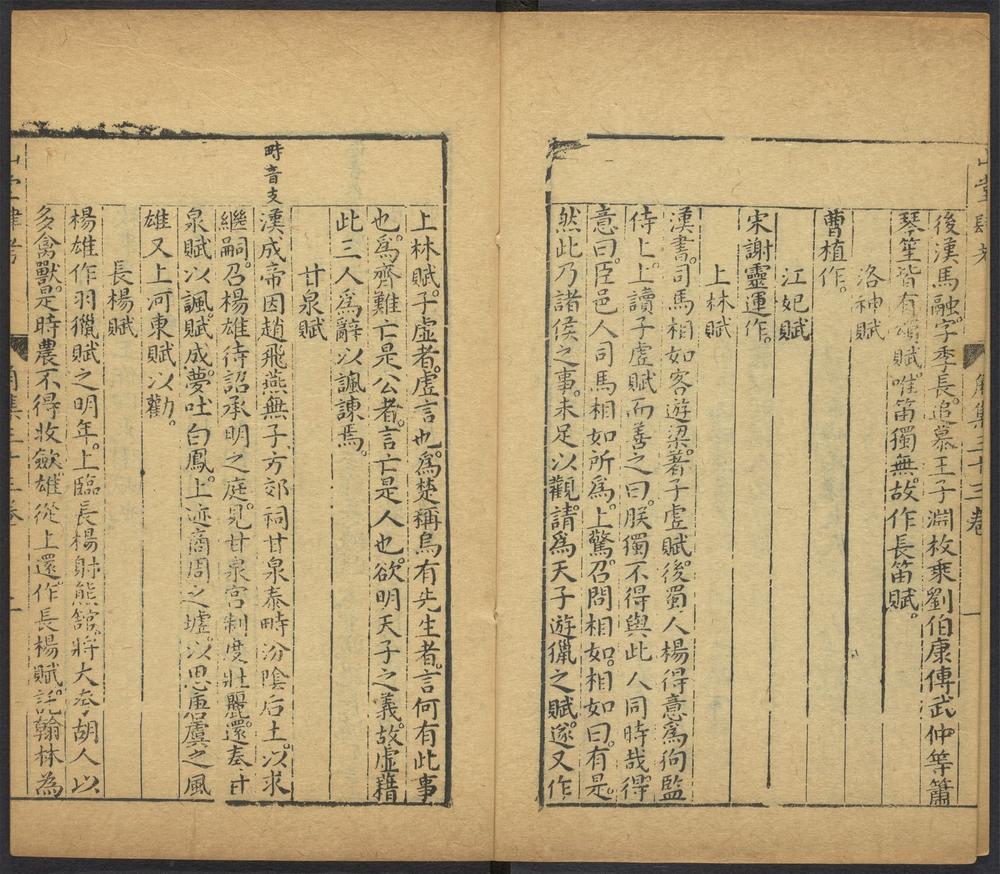 後漢馬融字季長追慕王子淵枚乘劉伯康傅武仲等簫
琴笙皆有頌賦唯笛獨無故作長笛賦。
洛神賦
曹植作。
江妃賦
宋謝靈運作。
上林賦
漢書司馬相如客遊梁著子虛賦後蜀人楊得意為狗監
侍上上讀子虛賦而善之曰朕獨不得與此人同時哉得
意曰臣邑人司馬相如所為上驚召問相如相如曰有是
然此乃諸侯之事未足以觀請為天子遊獵之賦遂又作
上林賦子虛者虛言也為楚稱烏有先生者言何有此事
也為齊難亡是公者言亡是人也欲明天子之義故虛藉
此三人為辭以諷諫焉。
甘泉賦
畤音支
漢成帝因趙飛燕無子方郊祠甘泉泰畤汾陰后土以求
繼嗣召楊雄待詔承明之庭見甘泉宮制度壯麗還奏甘
泉賦以諷賦成夢吐白鳳上迹商周之墟以思唐虞之風
雄又上河東賦以勸。
長楊賦
楊雄作羽獵賦之明年上臨長楊射熊館將大夸胡人以
多禽獸是時農不得收斂雄從上還作長楊賦託翰林為